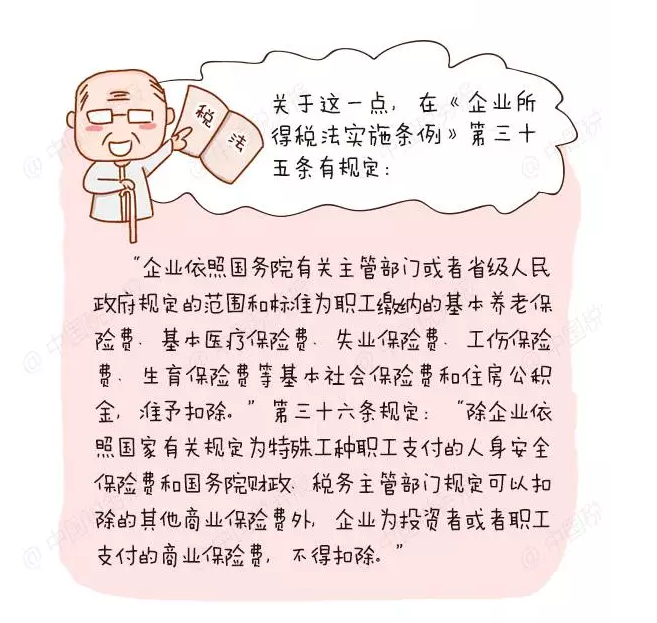 税法
关于这一点，在《企业所
得税法实施条例》第三十
五条有规定：
“企业依照国务院有关主管部门或者省级人民
政府规定的范围和标准为职工缴纳的基本养老保
险费、基本医疗保险费、失业保险费、工伤保险
费、生育保险费等基本社会保险费和住房公积
金，准予扣除。”第三十六条规定：“除企业依
照国家有关规定为特殊工种职工支付的人身安全
保险费和国务院财政、税务主管部门规定可以扣
除的其他商业保险费外，企业为投资者或者职工
支付的商业保险费，不得扣除。”